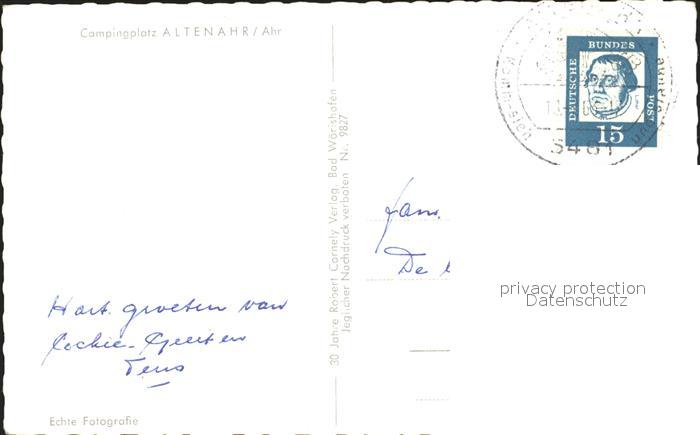 Campingplatz ALTENAHR/Ahr
DEUTSCHE
BUNDES
POST
15
5481
30 Jahre Robert Cornely Verlag, Bad Wörishofen
Jeglicher Nachdruck verboten Nr. 9827
Fam.
De
privacy protection
Datenschutz
Hart. groeten van
Echte Fotografie